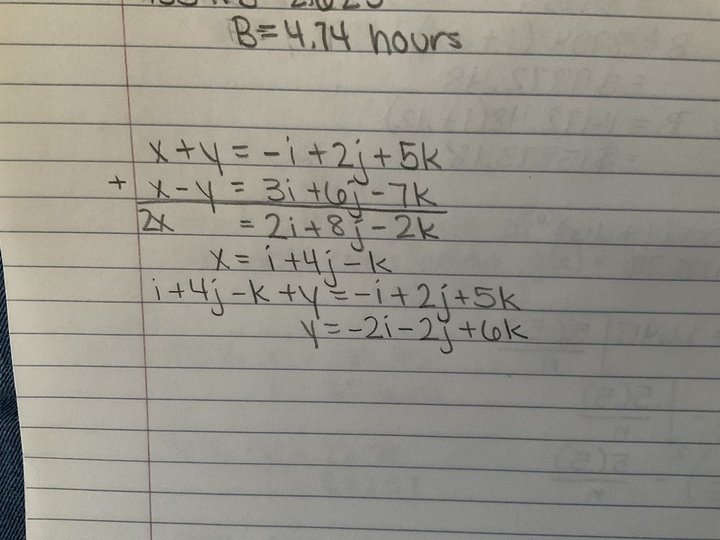 B=4.74 hours
x+y = -i+2j+5k
+ x-y = 3i+6j-7k
2x = 2i+8j-2k
x= i+4j-k
i+4j-k+y=-i+2j+5k
y=-2i-2j+6k